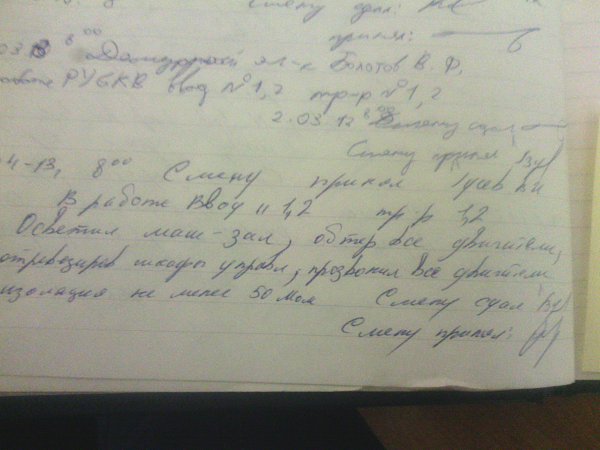 Смену сдал:
принял:
8⁰⁰ Дежурный эл-к Болотов В. Ф,
РУ6КВ ввод №1,2 тр-р №1,2
2.03.12 8⁰⁰ Смену сдал
Смену принял
4-13, 8⁰⁰ Смену принял Гусев
В работе Ввод н 1,2 тр-р 1,2
Осветил маш-зал, обтер все двигатели,
шкафы управл, прозвонил все двигатели
изоляция не менее 50 Мом Смену сдал
Смену принял: